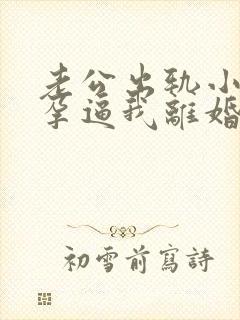 老公出轨小
孕逼我離婚
初雪前寫詩